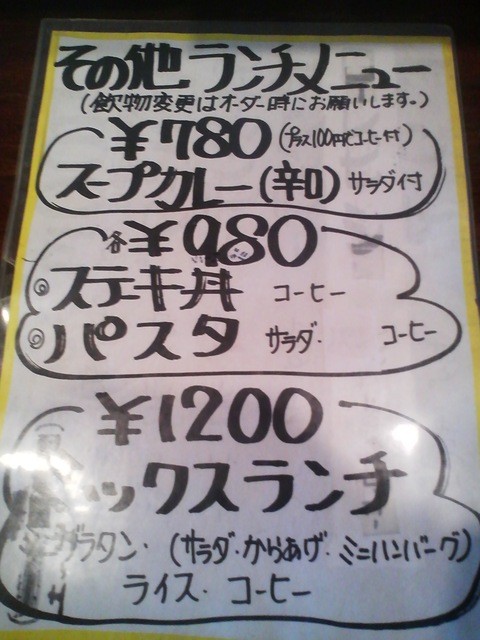 その他ランチメニュー
(飲物変更はオーダー時にお願いします。)
¥780 (プラス100円でコーヒー付)
スープカレー(辛口) サラダ付
各¥980
ステーキ丼 コーヒー
パスタ サラダ・ コーヒー
¥1200
ックスランチ
グラタン・(サラダ・からあげ・ミニハンバーグ)
ライス・コーヒー